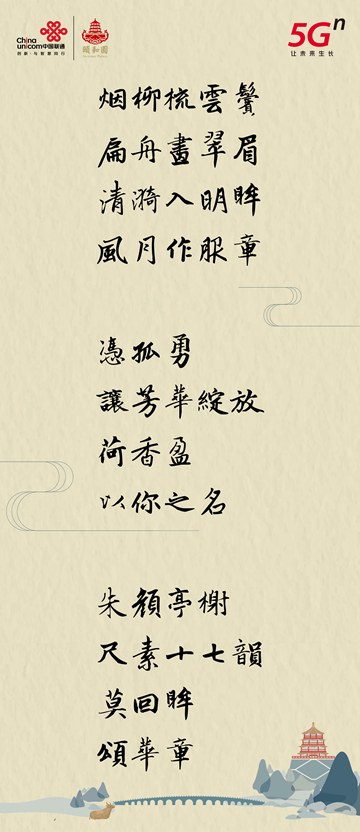 China
unicom中国联通
创新·与智慧同行
颐和园
5Gⁿ
让未来生长
烟柳梳雲鬢
扁舟畫翠眉
清漪入明眸
風月作服章
憑孤勇
讓芳華綻放
荷香盈
以你之名
朱顏亭榭
尺素十七韻
莫回眸
頌華章